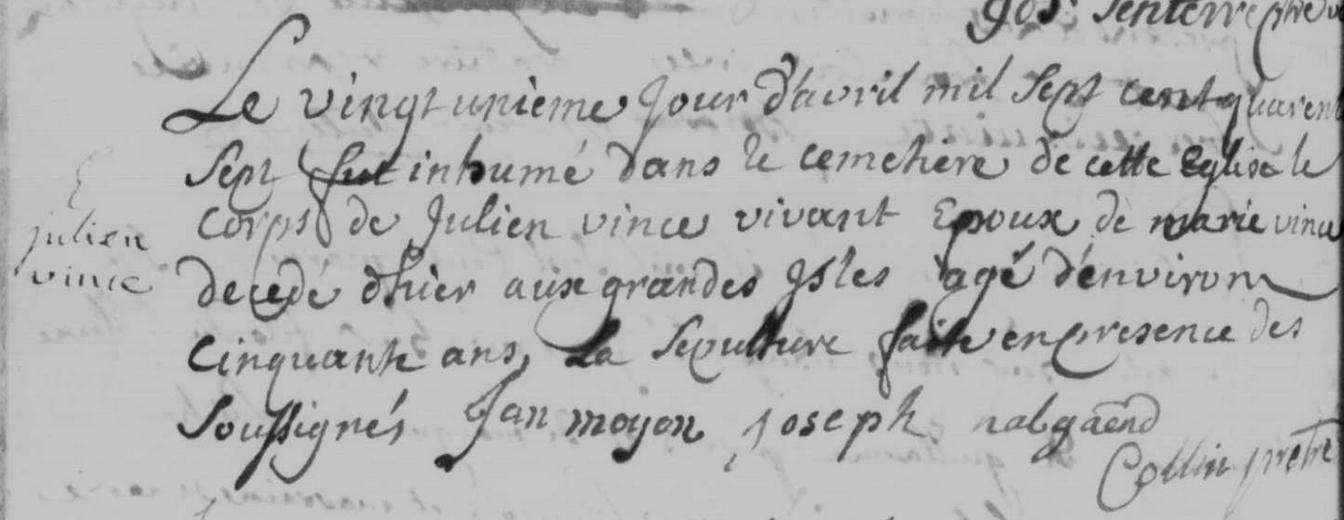 Le vingt unieme Jour d'avril mil sept cent quarent
sept fut inhumé dans le cemetiere de cette Eglise le
corps de Julien vince vivant Epoux de marie vince
decedé d'hier aux grandes Isles agé d'environ
cinquante ans, La sepulture faite en presence des
soussignés Jan moyon joseph nalgaënd
Collin prêtre
julien
vince